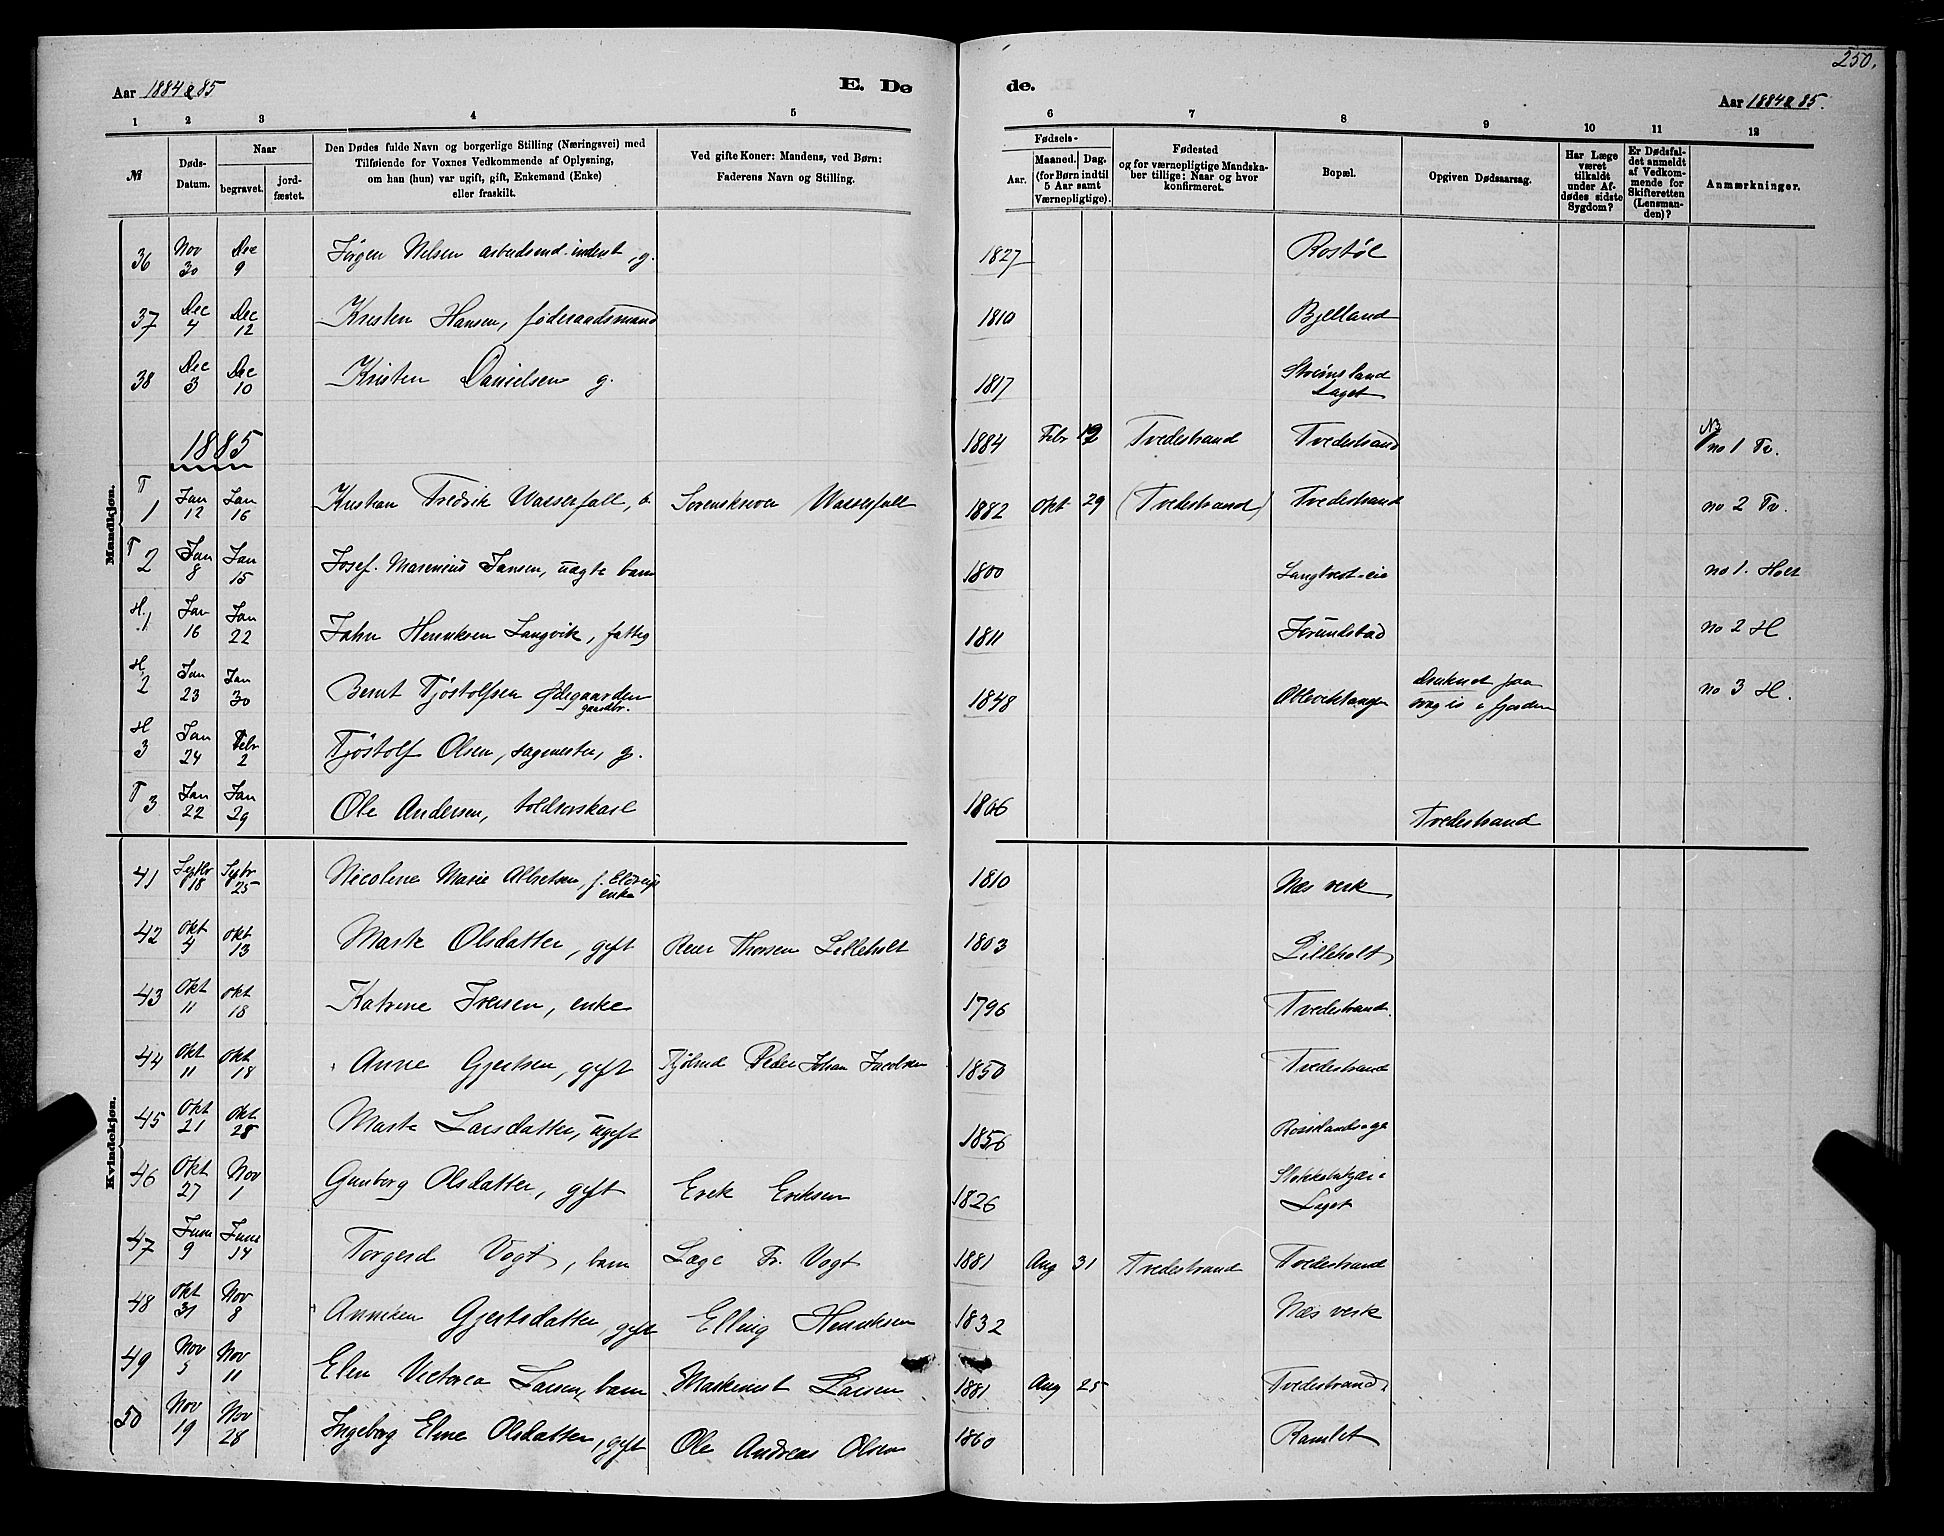 250.
Aar 1884 & 85
E. Dø
de.
Aar 1884 & 85.
1 2 3 4 5
6 7 8 9 10 11 12
№
Døds-Datum.
Naar
begravet.
jord-fæstet.
Den Dødes fulde Navn og borgerlige Stilling (Næringsvei) med
Tilføiende for Voxnes Vedkommende af Oplysning,
om han (hun) var ugift, gift, Enkemand (Enke)
eller fraskilt.
Ved gifte Koner: Mandens, ved Børn:
Faderens Navn og Stilling.
Fødsels-
Aar.
Maaned. Dag.
(for Børn indtil
5 Aar samt
Værnepligtige).
Fødested
og for værnepligtige Mandska-
ber tillige: Naar og hvor
konfirmeret.
Bopæl.
Opgiven Dødsaarsag.
Har Læge
været
tilkaldt
under Af-
dødes sidste
Sygdom?
Er Dødsfal-
det anmeldt
af Vedkom-
mende for
Skifteretten
(Lensman-
den)?
Anmærkninger.
Mandkjøn.
36 Nov 30 Dec 9 Jørgen Nelsen arbeidsmd. inderst, g. 1827 Rostøl
37 Dec 4 Dec 12 Kristen Hansen, føderaadsmand 1810 Bjelland
38 Dec 3 Dec 10 Kristen Danielsen g. 1817 Strømsland Laget
1885 1884 Febr 12 Tvedestrand Tvedestrand no 1 Tv.
T 1 Jan 12 Jan 16 Kristian Fredrik Wasserfall, b. Sorenskriver Wasserfall 1882 Okt 29 (Tvedestrand) Tvedestrand no 2 Tv.
T 2 Jan 8 Jan 15 Josef Marenius Jansen, uægte barn 1800 Langtvet-eie no 1. Holt
H. 1 Jan 16 Jan 22 Jahn Henriksen Langvik, fattig 1811 Jorundstad no 2 H
H. 2 Jan 23 Jan 30 Bernt Tjøstolfsen Ødegaarden gaardbr. 1848 Druknet paa svag is i fjorden no 3 H.
H 3 Jan 24 Febr 2 Tjøstolf Olsen, sagmester, g.
T 3 Jan 22 Jan 29 Ole Andersen, toldrorskarl 1806 Tvedestrand
Kvindekjøn.
41 Septbr 18 Septbr 25 Nicoline Marie Albretsen, f. enke 1810 Næs verk
42 Okt 4 Okt 13 Marte Olsdatter, gift Reier Thorsen Lilleholt 1803 Lilleholt
43 Okt 11 Okt 18 Katrine Iversen, enke 1796 Tvedestrand
44 Okt 11 Okt 18 Anne Gjertsen, gift Peder Johan Jacobsen 1850 Tvedestrand
45 Okt 21 Okt 28 Marte Larsdatter, ugift 1856
46 Okt 27 Nov 1 Gunborg Olsdatter, gift Erik Eriksen 1826 Laget
47 Juni 9 Juni 14 Torgerd Vogt, barn Læge Fr. Vogt 1881 Aug 31 Tvedestrand Tvedestrand
48 Okt 31 Nov 8 Anniken Gjertsdatter, gift Elling Henriksen 1832 Næs verk
49 Nov 5 Nov 11 Elen Victoria Larsen, barn Maskinist Larsen 1881 Aug 25 Tvedestrand
50 Nov 19 Nov 28 Ingeborg Eline Olsdatter, gift Ole Andreas Olsen 1860 Ramlet